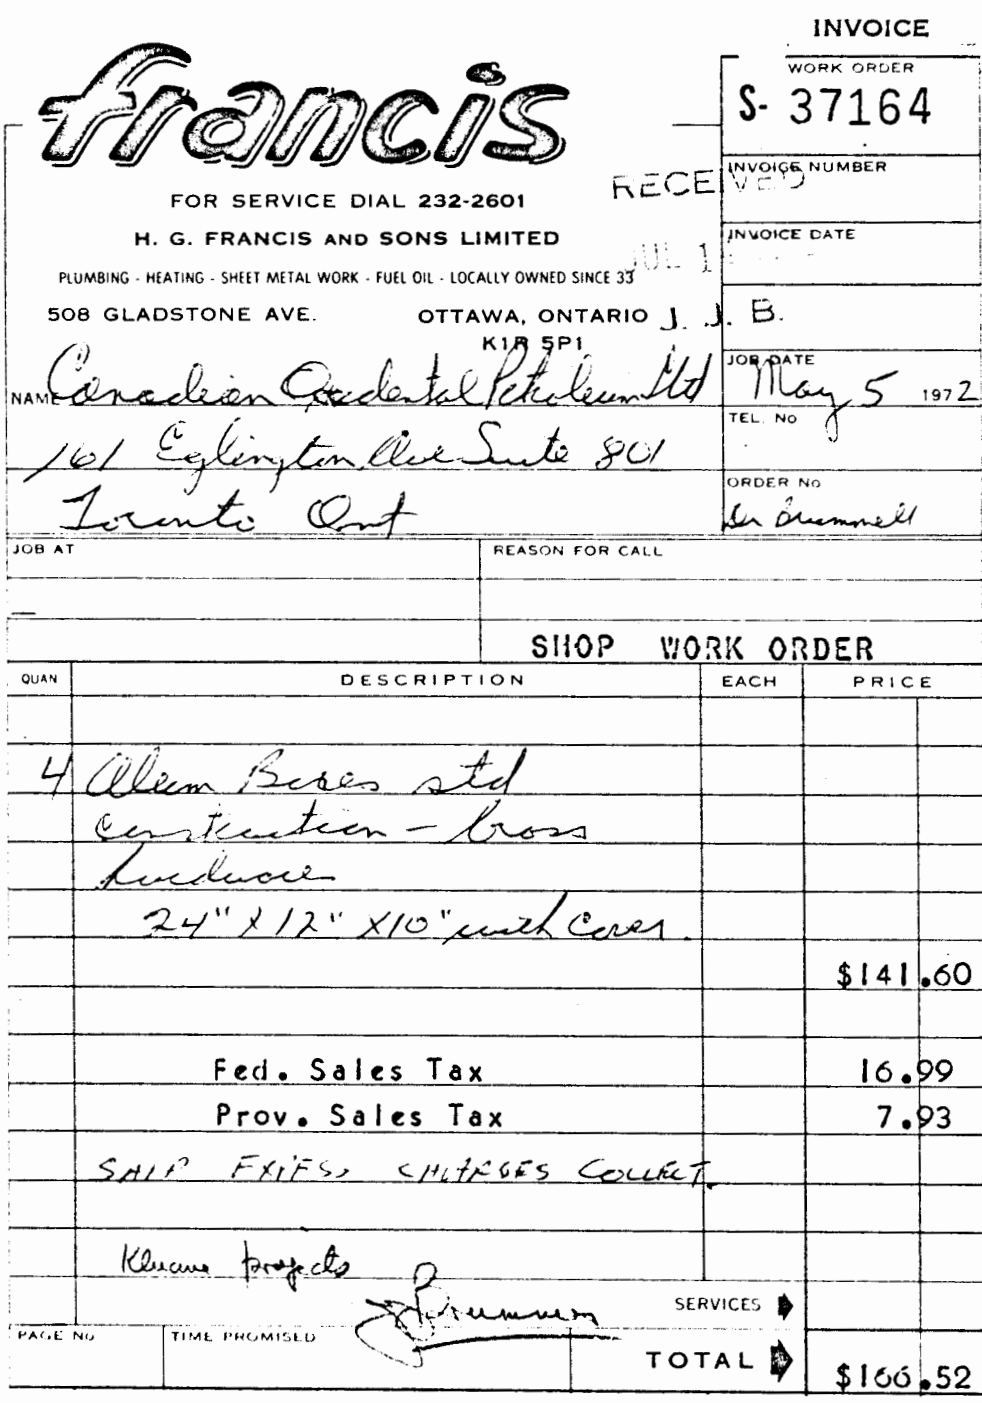 INVOICE
francis
WORK ORDER
S- 37164
FOR SERVICE DIAL 232-2601
INVOICE NUMBER
RECEIVED
H. G. FRANCIS AND SONS LIMITED
INVOICE DATE
JUL 1
PLUMBING - HEATING - SHEET METAL WORK - FUEL OIL - LOCALLY OWNED SINCE 33
508 GLADSTONE AVE. OTTAWA, ONTARIO
K1R 5P1
J. J. B.
JOB DATE
May 5 1972
NAME Canadian Occidental Petroleum Ltd
TEL. No
161 Eglington Ave Suite 801
Toronto Ont
ORDER No
Brummell
JOB AT
REASON FOR CALL
SHOP WORK ORDER
QUAN DESCRIPTION EACH PRICE
4 Alum Boxes std
construction - 
hardware
24" X 12" X10" with Cover.
$141.60
Fed. Sales Tax 16.99
Prov. Sales Tax 7.93
SHIP EXPESS CHARGES COLLECT.
Kluane projects
SERVICES
PAGE No
TIME PROMISED
TOTAL $166.52